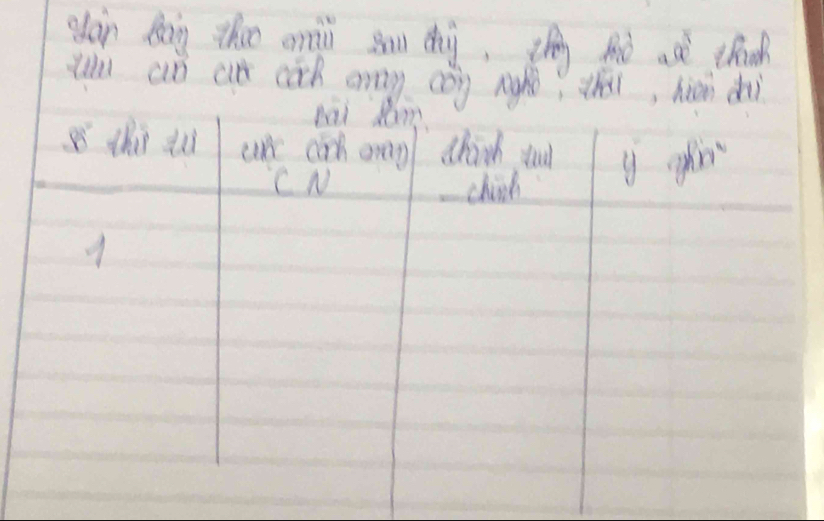 lập bảng theo mẫu sau đây, thống kê về thành
tựu của cuộc cách mạng công nghệ, thời, hiện đại
bài làm
số thứ tự cuộc cách mạng thành tựu ý nghĩa
CN chính
1